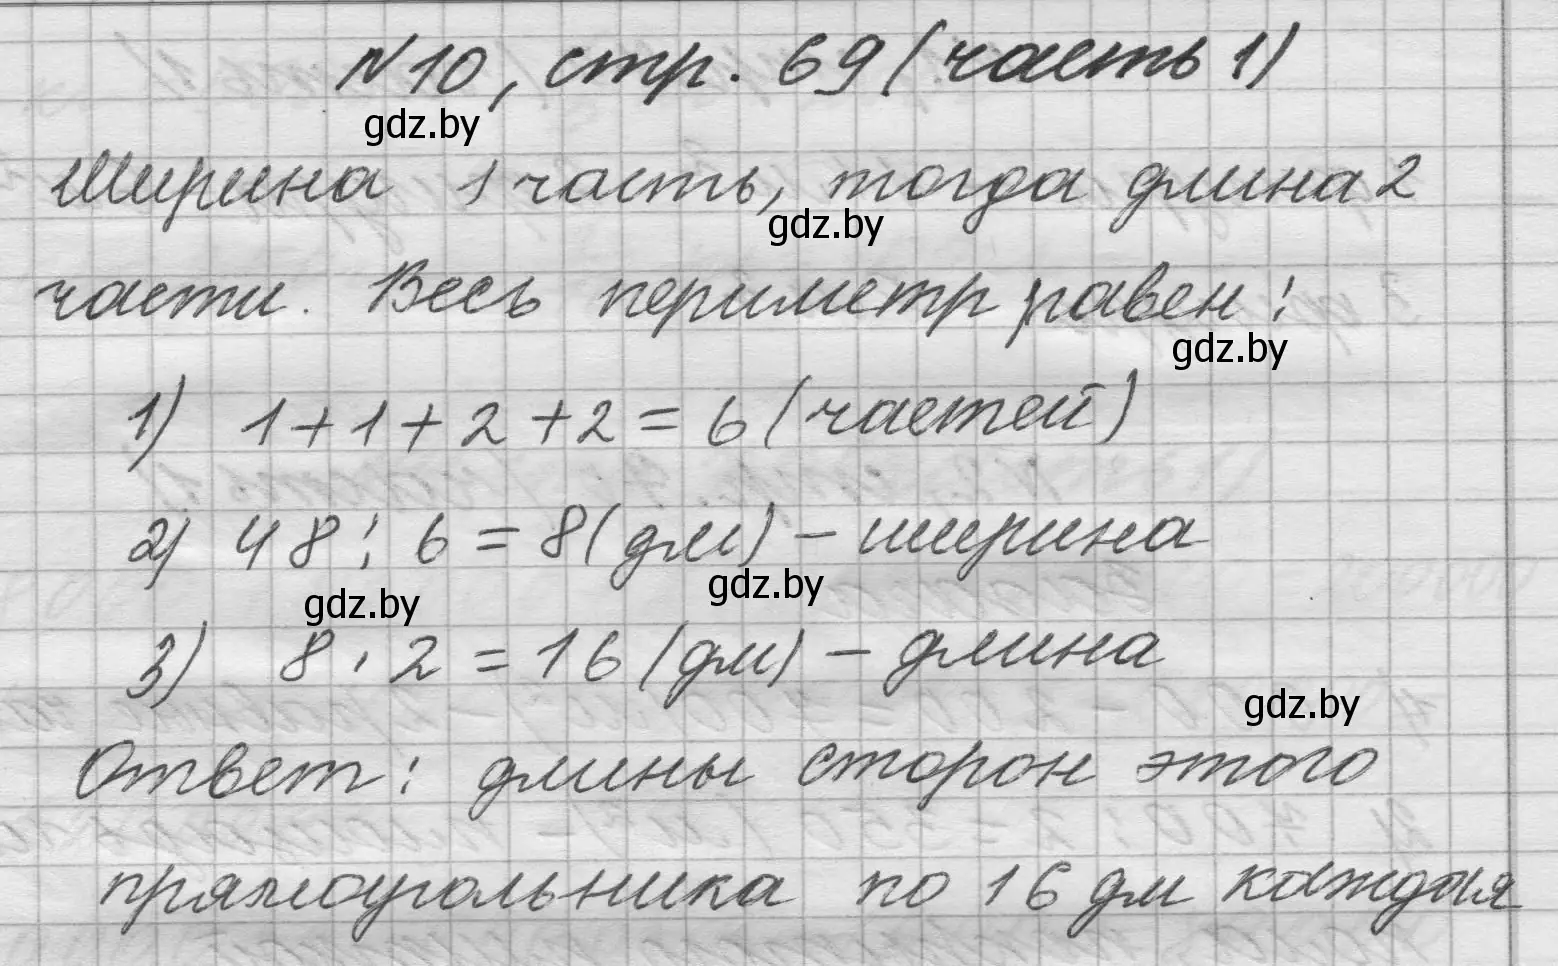 №10, стр. 69 (часть 1)
gdz.by
Ширина 1 часть, тогда длина 2
gdz.by
части. Весь периметр равен:
gdz.by
1) 1+1+2+2=6 (частей)
2) 48:6=8(дм) – ширина
gdz.by
gdz.by
3) 8·2=16 (дм) – длина
gdz.by
Ответ: длины сторон этого
прямоугольника по 16 дм каждая